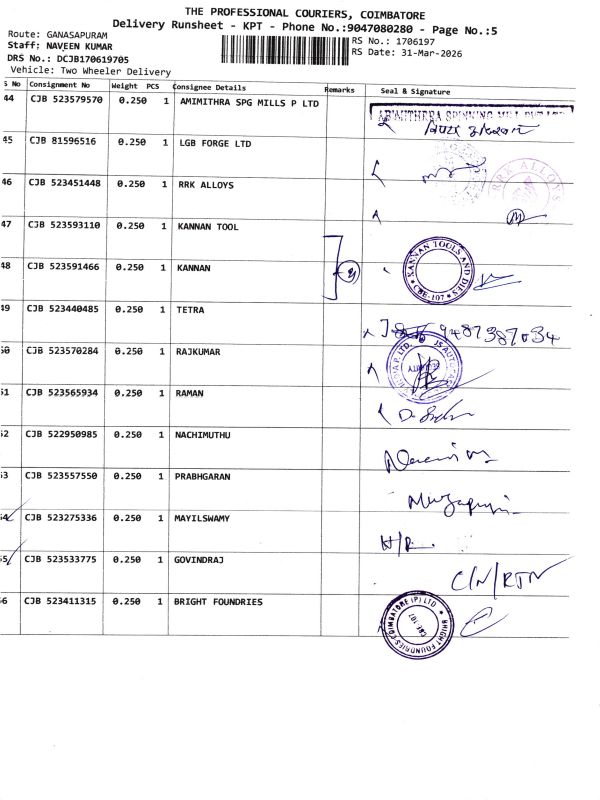 THE PROFESSIONAL COURIERS, COIMBATORE
Delivery Runsheet - KPT - Phone No.:9047080280 - Page No.:5
Route: GANASAPURAM
RS No.: 1706197
Staff: NAVEEN KUMAR
RS Date: 31-Mar-2026
DRS No.: DCJB170619705
Vehicle: Two Wheeler Delivery
S No Consignment No Weight PCS Consignee Details Remarks Seal & Signature
44 CJB 523579570 0.250 1 AMIMITHRA SPG MILLS P LTD
45 CJB 81596516 0.250 1 LGB FORGE LTD
46 CJB 523451448 0.250 1 RRK ALLOYS RRK ALLOYS
47 CJB 523593110 0.250 1 KANNAN TOOL
KANNAN TOOLS AND DIES CBE-107
48 CJB 523591466 0.250 1 KANNAN
49 CJB 523440485 0.250 1 TETRA 9487387034
50 CJB 523570284 0.250 1 RAJKUMAR
51 CJB 523565934 0.250 1 RAMAN
52 CJB 522950985 0.250 1 NACHIMUTHU
53 CJB 523557550 0.250 1 PRABHGARAN
54 CJB 523275336 0.250 1 MAYILSWAMY
55 CJB 523533775 0.250 1 GOVINDRAJ C/N/RTN
56 CJB 523411315 0.250 1 BRIGHT FOUNDRIES
BRIGHT FOUNDRIES COIMBATORE (P) LTD CBE 107